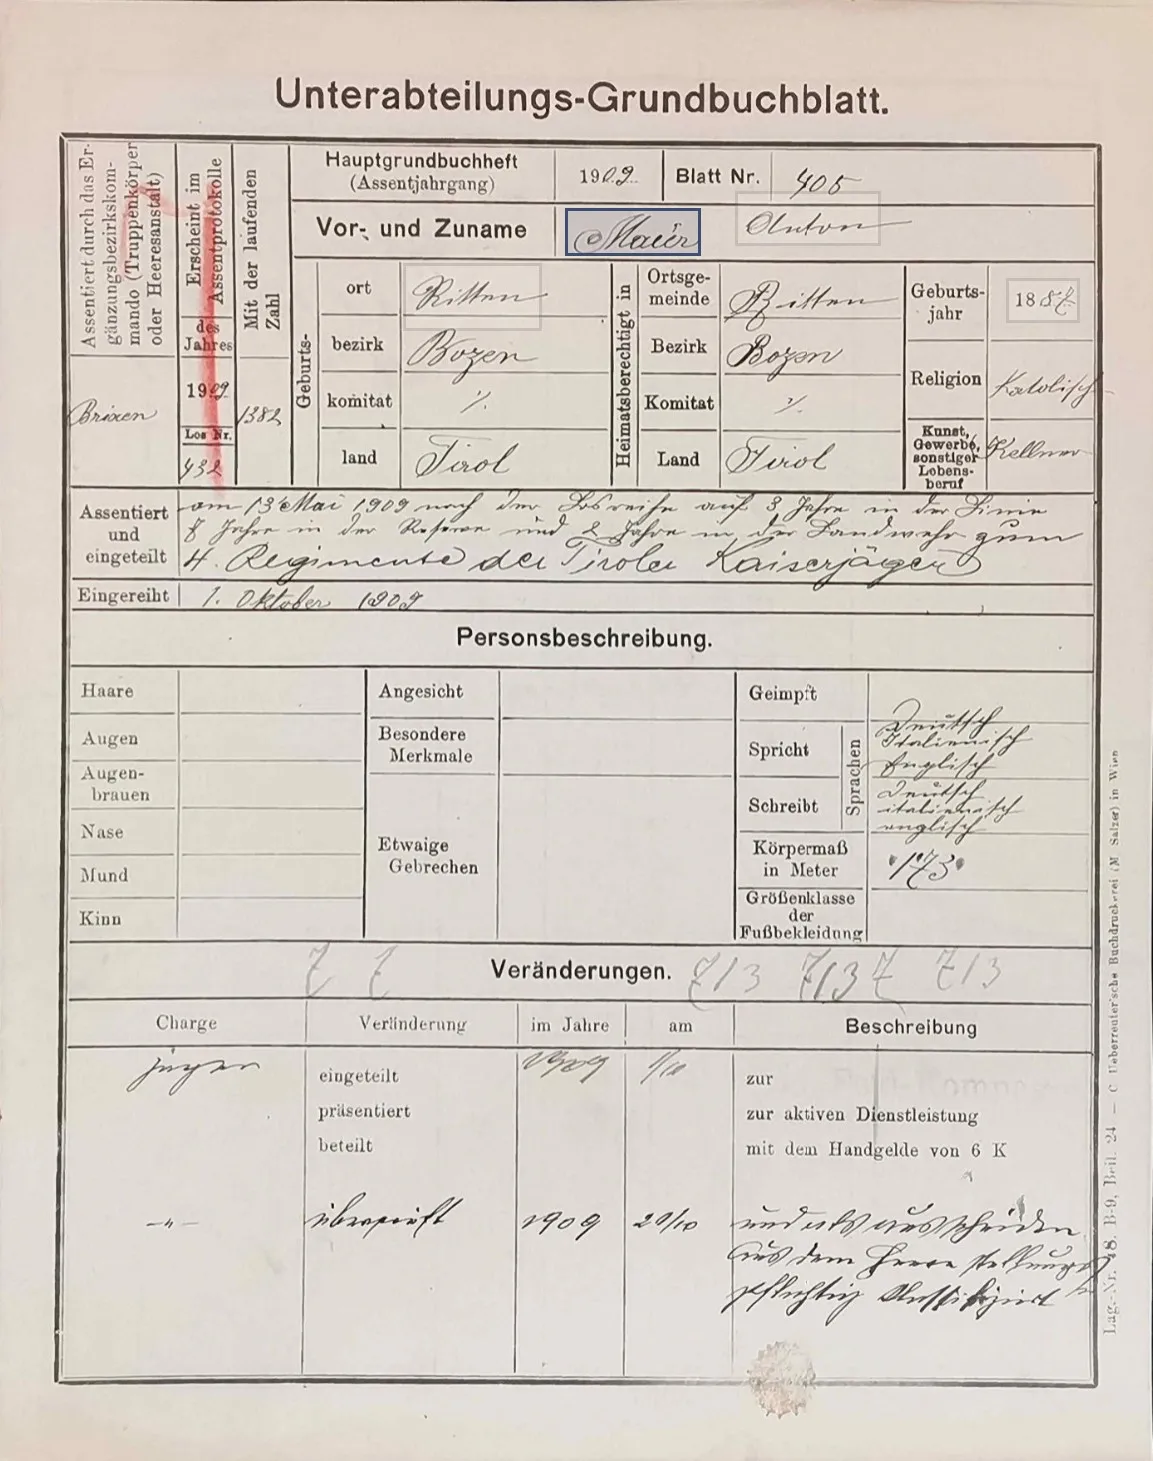 Unterabteilungs-Grundbuchblatt.
Assentiert durch das Er-
gänzungsbezirkskom-
mando (Truppenkörper
oder Heeresanstalt)
Brixen
Erscheint im
Assentprotokolle
des
Jahres
1909
Los Nr.
432
Mit der laufenden
Zahl
1382
Hauptgrundbuchheft
(Assentjahrgang)
1909
Blatt Nr.
405
Vor- und Zuname
Maier Anton
Geburts-
ort
Ritten
bezirk
Bozen
komitat
%
land
Tirol
Heimatsberechtigt in
Ortsge-
meinde
Ritten
Bezirk
Bozen
Komitat
%
Land
Tirol
Geburts-
jahr
1887
Religion
Katolisch
Kunst,
Gewerbe,
sonstiger
Lebens-
beruf
Kellner
Assentiert
und
eingeteilt
am 13 Mai 1909 nach der Losreihe auf 3 Jahre in der Linie
7 Jahre in der Reserve und 2 Jahre in der Landwehr zum
4. Regimente der Tiroler Kaiserjäger
Eingereiht
1. Oktober 1909
Personsbeschreibung.
Haare
Augen
Augen-
brauen
Nase
Mund
Kinn
Angesicht
Besondere
Merkmale
Etwaige
Gebrechen
Geimpft
Spricht
Schreibt
Sprachen
Deutsch
Italienisch
Englisch
Deutsch
italienisch
englisch
Körpermaß
in Meter
1'73
Größenklasse
der
Fußbekleidung
Veränderungen.
7/3 7/3 7/3
Charge
Veränderung
im Jahre
am
Beschreibung
Jäger
eingeteilt
1909
1/10
zur
präsentiert
zur aktiven Dienstleistung
beteilt
mit dem Handgelde von 6 K
–"–
überprüft
1909
20/10
und als auszuscheiden
aus dem Heere stellungs
pflichtig klassifiziert
Lag.-Nr. 48. B-9, Beil. 24 — C Ueberreuter'sche Buchdruckerei (M Salzer) in Wien